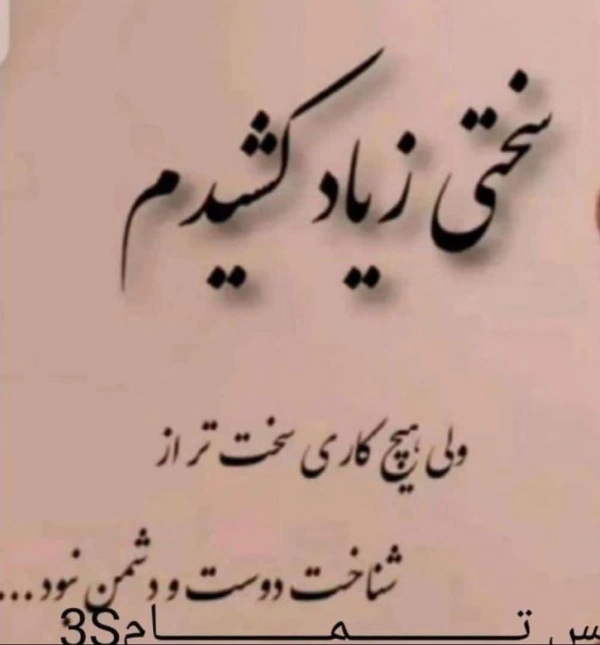 سختی زیاد کشیدم
ولی هیچ کاری سخت تر از
شناخت دوست و دشمن نبود...
تـــمـــام3S